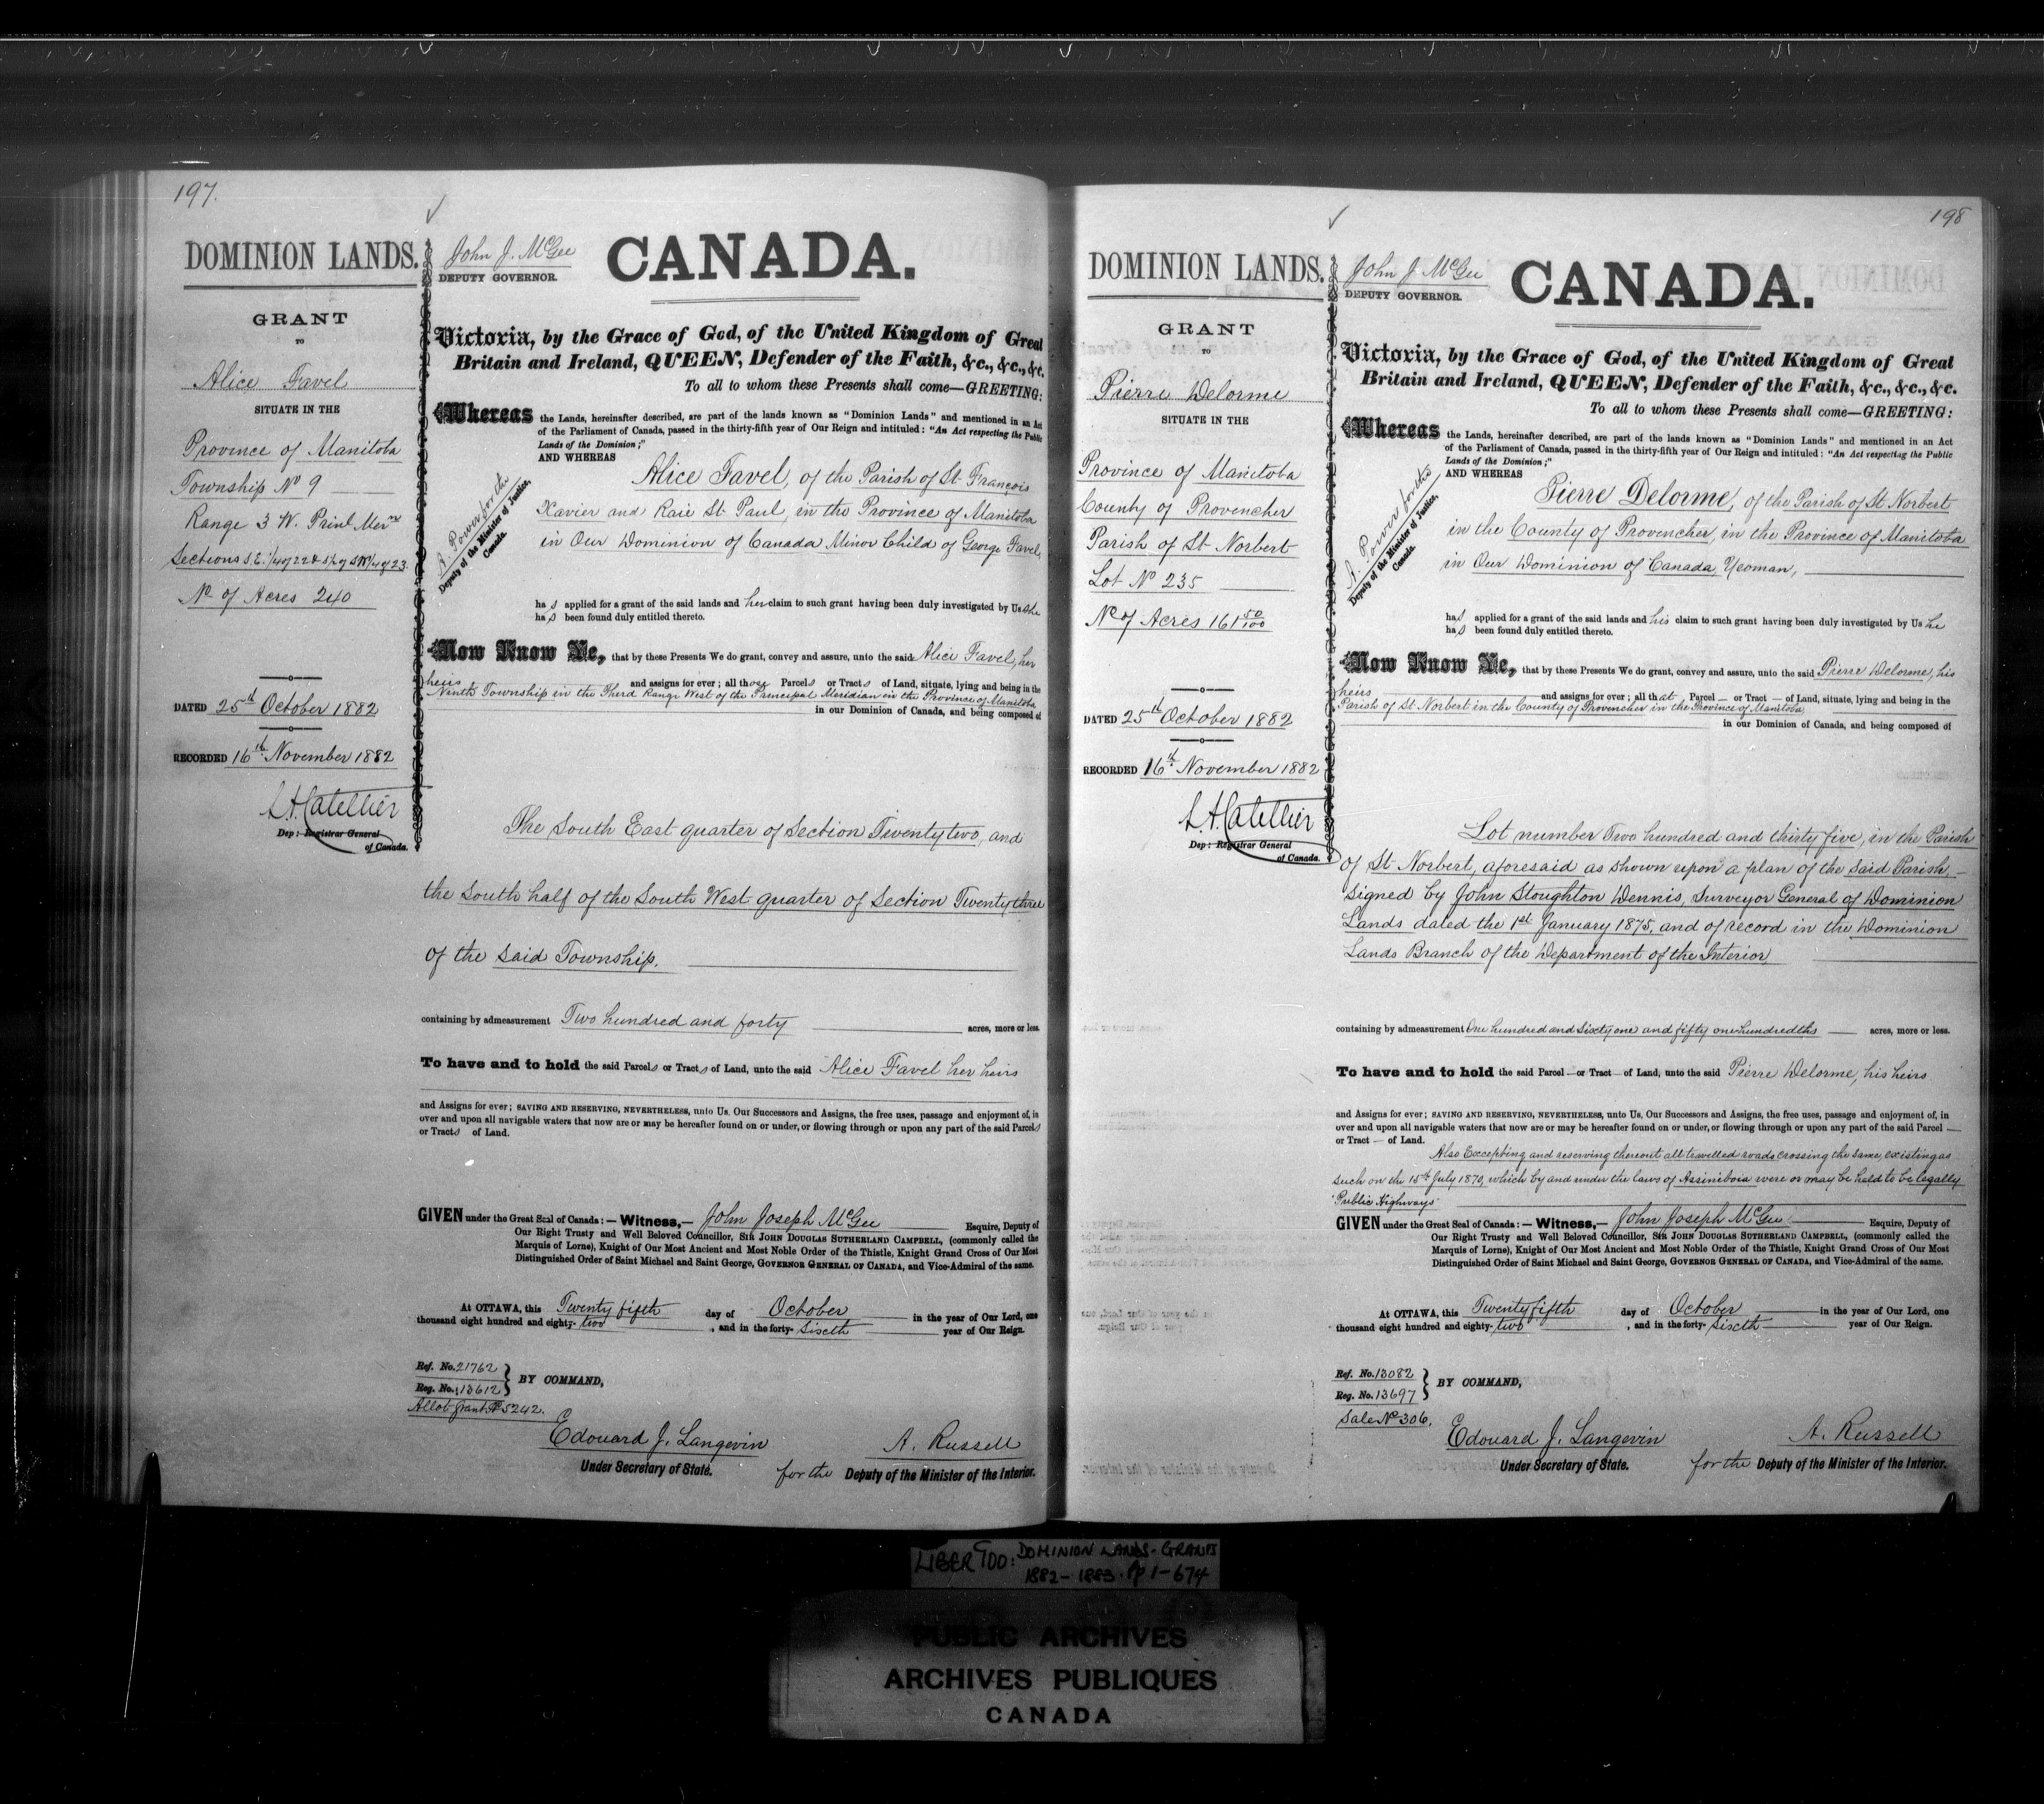 197.
DOMINION LANDS.
GRANT
TO
Alice Favel
SITUATE IN THE
Province of Manitoba
Township No 9
Range 3 W. Prinl Mern
Sections S.E. 1/4 of 22 & S 1/2 of S W 1/4 of 23.
No of Acres 240
DATED 25th October 1882
RECORDED 16th November 1882
L.A. Catellier
Dep: Registrar General
of Canada.
John J. McGee
DEPUTY GOVERNOR.
CANADA.
Victoria, by the Grace of God, of the United Kingdom of Great
Britain and Ireland, QUEEN, Defender of the Faith, &c., &c., &c.
To all to whom these Presents shall come—GREETING:
Whereas the Lands, hereinafter described, are part of the lands known as "Dominion Lands" and mentioned in an Act
of the Parliament of Canada, passed in the thirty-fifth year of Our Reign and intituled: "An Act respecting the Public
Lands of the Dominion;"
AND WHEREAS
A. Power for the
Deputy of the Minister of Justice,
Canada.
Alice Favel, of the Parish of St François
Xavier and Baie St Paul, in the Province of Manitoba
in Our Dominion of Canada Minor Child of George Favel,
has applied for a grant of the said lands and her claim to such grant having been duly investigated by Us she
has been found duly entitled thereto.
Now Know Ye, that by these Presents We do grant, convey and assure, unto the said Alice Favel, her
heirs and assigns for ever; all those Parcels or Tracts of Land, situate, lying and being in the
Ninth Township in the Third Range West of the Principal Meridian in the Province of Manitoba
in our Dominion of Canada, and being composed of
The South East quarter of Section Twenty two, and
the South half of the South West quarter of Section Twenty three
of the said Township.
containing by admeasurement Two hundred and forty acres, more or less.
To have and to hold the said Parcels or Tracts of Land, unto the said Alice Favel her heirs
and Assigns for ever; SAVING AND RESERVING, NEVERTHELESS, unto Us, Our Successors and Assigns, the free uses, passage and enjoyment of, in
over and upon all navigable waters that now are or may be hereafter found on or under, or flowing through or upon any part of the said Parcels
or Tracts of Land.
GIVEN under the Great Seal of Canada:— Witness,— John Joseph McGee Esquire, Deputy of
Our Right Trusty and Well Beloved Councillor, SIR JOHN DOUGLAS SUTHERLAND CAMPBELL, (commonly called the
Marquis of Lorne), Knight of Our Most Ancient and Most Noble Order of the Thistle, Knight Grand Cross of Our Most
Distinguished Order of Saint Michael and Saint George, GOVERNOR GENERAL OF CANADA, and Vice-Admiral of the same.
At OTTAWA, this Twenty fifth day of October in the year of Our Lord, one
thousand eight hundred and eighty-two, and in the forty-sixth year of Our Reign.
Ref. No. 21762
Reg. No. 13612
BY COMMAND,
Allot Grant No 5242.
Edouard J. Langevin
Under Secretary of State.
A. Russell
for the Deputy of the Minister of the Interior.
198
DOMINION LANDS.
GRANT
TO
Pierre Delorme
SITUATE IN THE
Province of Manitoba
County of Provencher
Parish of St Norbert
Lot No 235
No of Acres 161 50/100
DATED 25th October 1882
RECORDED 16th November 1882
L.A. Catellier
Dep: Registrar General
of Canada.
John J McGee
DEPUTY GOVERNOR.
CANADA.
Victoria, by the Grace of God, of the United Kingdom of Great
Britain and Ireland, QUEEN, Defender of the Faith, &c., &c., &c.
To all to whom these Presents shall come—GREETING:
Whereas the Lands, hereinafter described, are part of the lands known as "Dominion Lands" and mentioned in an Act
of the Parliament of Canada, passed in the thirty-fifth year of Our Reign and intituled: "An Act respecting the Public
Lands of the Dominion;"
AND WHEREAS
A. Power for the
Deputy of the Minister of Justice,
Canada.
Pierre Delorme, of the Parish of St Norbert
in the County of Provencher, in the Province of Manitoba
in Our Dominion of Canada, Yeoman,
has applied for a grant of the said lands and his claim to such grant having been duly investigated by Us he
has been found duly entitled thereto.
Now Know Ye, that by these Presents We do grant, convey and assure, unto the said Pierre Delorme, his
heirs and assigns for ever; all that Parcel or Tract of Land, situate, lying and being in the
Parish of St Norbert in the County of Provencher in the Province of Manitoba,
in our Dominion of Canada, and being composed of
Lot number Two hundred and thirty five, in the Parish
of St Norbert, aforesaid as shown upon a plan of the said Parish,
signed by John Stoughton Dennis, Surveyor General of Dominion
Lands dated the 1st January 1875, and of record in the Dominion
Lands Branch of the Department of the Interior,
containing by admeasurement One hundred and sixty one and fifty one hundredths acres, more or less.
To have and to hold the said Parcel or Tract of Land, unto the said Pierre Delorme, his heirs
and Assigns for ever; SAVING AND RESERVING, NEVERTHELESS, unto Us, Our Successors and Assigns, the free uses, passage and enjoyment of, in
over and upon all navigable waters that now are or may be hereafter found on or under, or flowing through or upon any part of the said Parcel
or Tract of Land.
Also Excepting and reserving thereout all travelled roads crossing the same, existing as
such on the 15th July 1870, which by and under the laws of Assiniboia were or may be held to be legally
"Public Highways"
GIVEN under the Great Seal of Canada:— Witness,— John Joseph McGee Esquire, Deputy of
Our Right Trusty and Well Beloved Councillor, SIR JOHN DOUGLAS SUTHERLAND CAMPBELL, (commonly called the
Marquis of Lorne), Knight of Our Most Ancient and Most Noble Order of the Thistle, Knight Grand Cross of Our Most
Distinguished Order of Saint Michael and Saint George, GOVERNOR GENERAL OF CANADA, and Vice-Admiral of the same.
At OTTAWA, this Twenty fifth day of October in the year of Our Lord, one
thousand eight hundred and eighty-two, and in the forty-sixth year of Our Reign.
Ref. No. 13082
Reg. No. 13697
BY COMMAND,
Sale No 306.
Edouard J. Langevin
Under Secretary of State.
A. Russell
for the Deputy of the Minister of the Interior.
LIBER 900: DOMINION LANDS - GRANTS
1882-1883. pp 1-674
PUBLIC ARCHIVES
ARCHIVES PUBLIQUES
CANADA